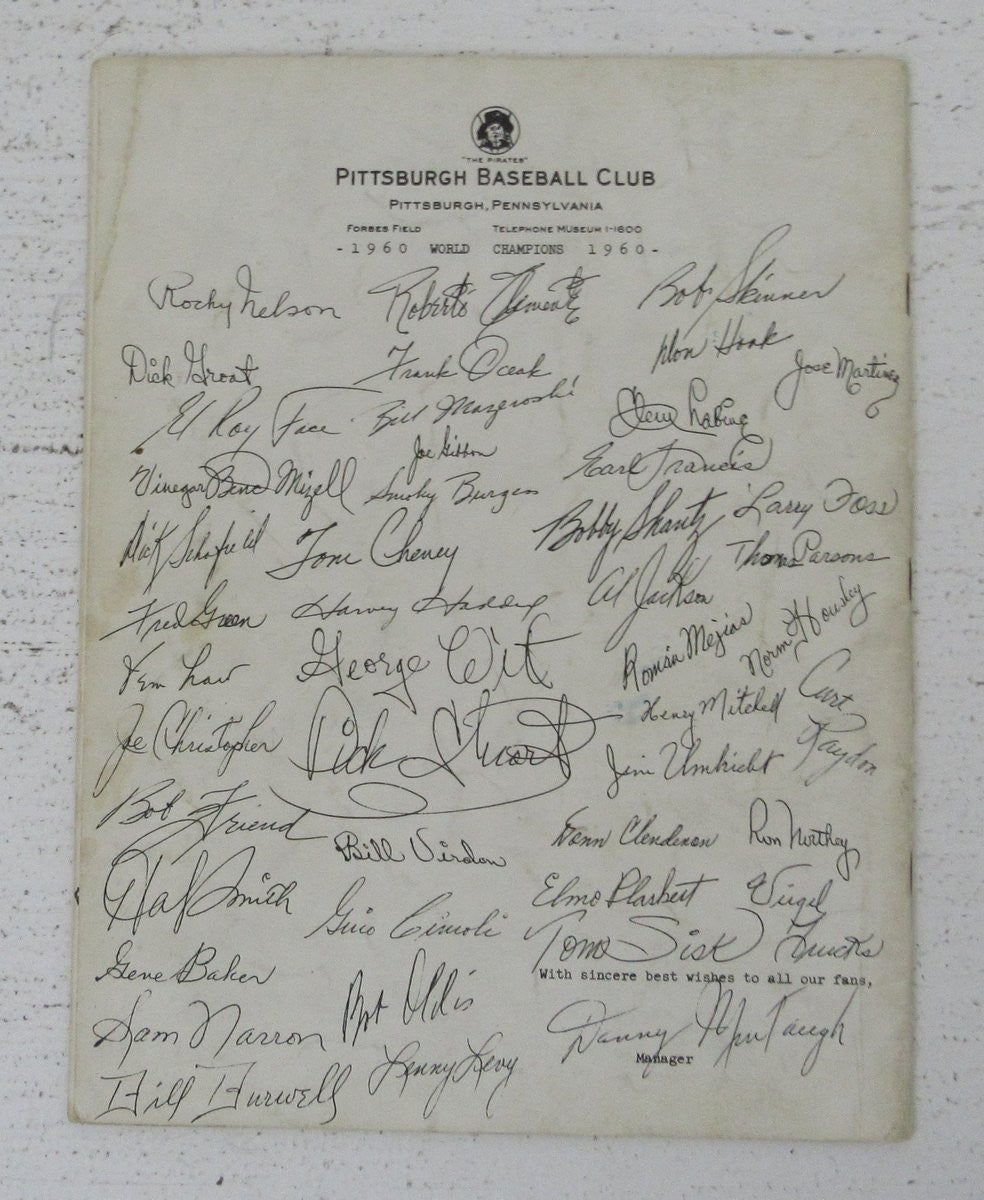 "THE PIRATES"
PITTSBURGH BASEBALL CLUB
PITTSBURGH, PENNSYLVANIA
FORBES FIELD TELEPHONE MUSEUM 1-1600
-1960 WORLD CHAMPIONS 1960-
Rocky Nelson Roberto Clemente Bob Skinner
Dick Groat Frank Oceak Don Hoak Jose Martinez
El Roy Face Bill Mazeroski Clem Labine
Joe Gibbon
Vinegar Bend Mizell Smoky Burgess Earl Francis
Dick Schofield Tom Cheney Bobby Shantz Larry Foss
Thomas Parsons
Fred Green Harvey Haddix Al Jackson
Vern Law George Witt Román Mejias Norm Housley
Joe Christopher Dick Stuart Henry Mitchell Curt Raydon
Jim Umbricht
Bob Friend Bill Virdon Donn Clendenon Ron Northey
Hal Smith Gino Cimoli Elmo Plaskett Virgil Trucks
Tom Sisk
Gene Baker Bob Oldis
With sincere best wishes to all our fans,
Sam Narron Danny Murtaugh
Manager
Bill Burwell Lenny Levy